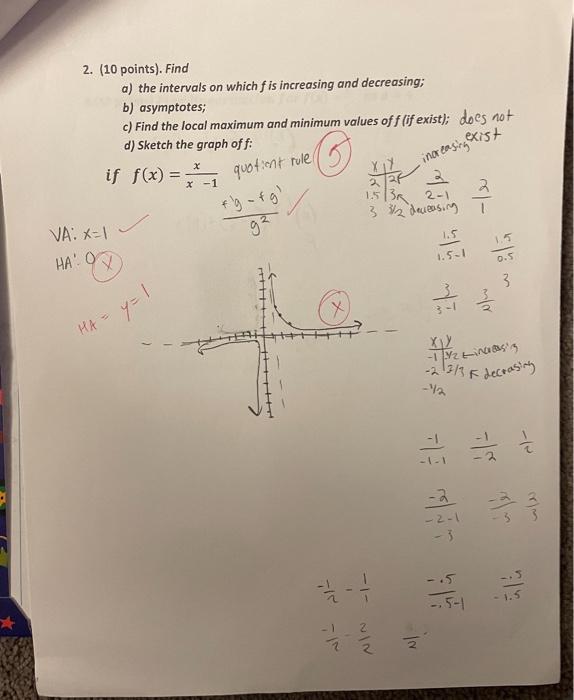 2. (10 points). Find
a) the intervals on which f is increasing and decreasing;
b) asymptotes;
c) Find the local maximum and minimum values of f (if exist); does not exist
d) Sketch the graph of f:
if f(x) = x / x - 1 quotient rule 5
f'g - fg' / g²
VA: x=1
HA: 0 X
HA = y=1
X
x y increasing
2 2
1.5 3
3 3/2 decreasing
2 / 2-1 2/1
1.5 / 1.5-1 1.5 / 0.5
3
3 / 3-1 3/2
x y
-1 1/2 increasing
-2 2/3 decrasing
-1/2
-1 / -1-1 -1 / -2 1/2
-2 / -2-1 -2 / -3 2/3
-3
-1/2 - 1/1 -.5 / -.5-1 -.5 / -1.5
-1/2 - 2/2